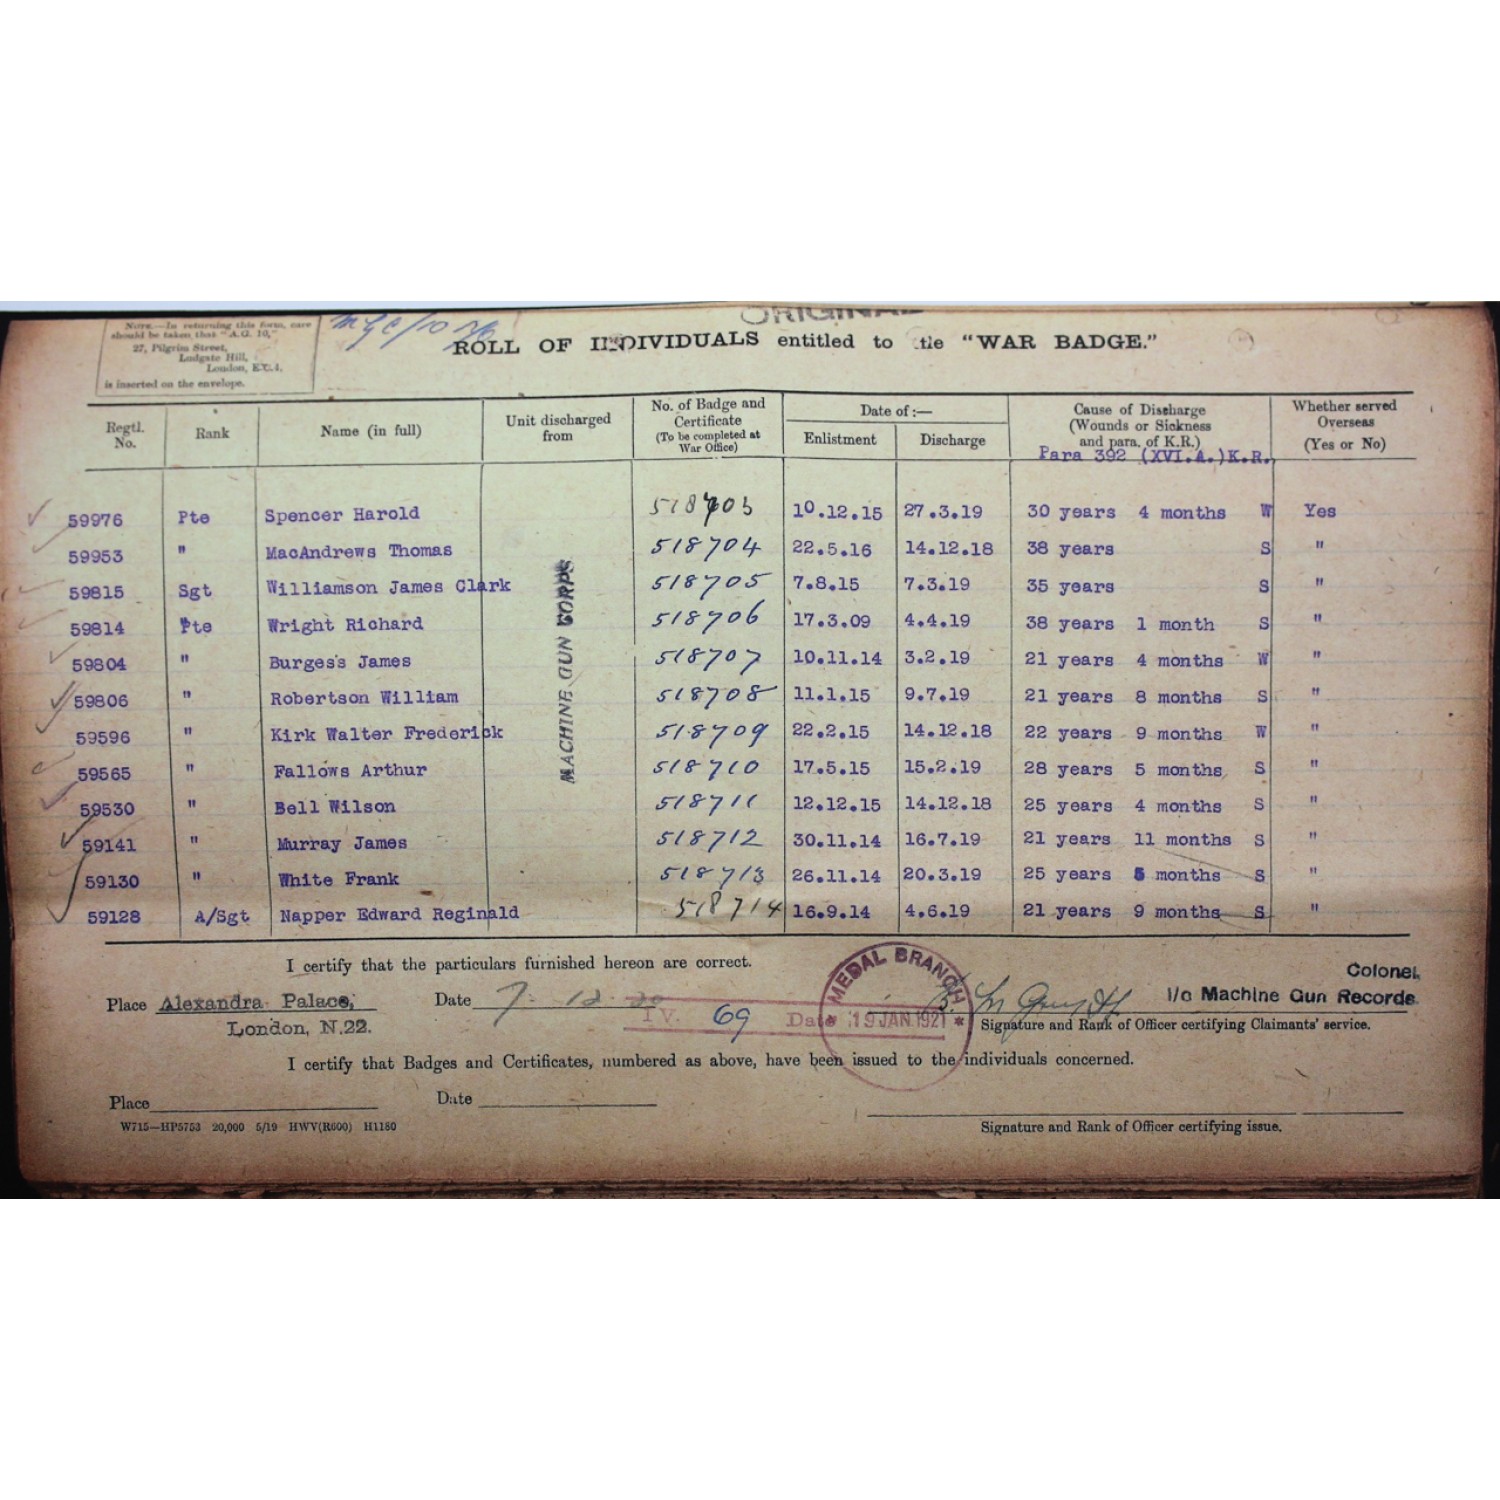 ORIGINAL
NOTE.—In returning this form, care
should be taken that "A.G. 10,"
27, Pilgrim Street,
Ludgate Hill,
London, E.C.4.
is inserted on the envelope.
MGC/10
ROLL OF INDIVIDUALS entitled to the "WAR BADGE."
Regtl. No. Rank Name (in full) Unit discharged from No. of Badge and Certificate (To be completed at War Office) Date of:— Enlistment Discharge Cause of Discharge (Wounds or Sickness and para. of K.R.) Whether served Overseas (Yes or No)
Para 392 (XVI.A.)K.R.
MACHINE GUN CORPS
59976 Pte Spencer Harold 518703 10.12.15 27.3.19 30 years 4 months W Yes
59953 " MacAndrews Thomas 518704 22.5.16 14.12.18 38 years S "
59815 Sgt Williamson James Clark 518705 7.8.15 7.3.19 35 years S "
59814 Pte Wright Richard 518706 17.3.09 4.4.19 38 years 1 month S "
59804 " Burgess James 518707 10.11.14 3.2.19 21 years 4 months W "
59806 " Robertson William 518708 11.1.15 9.7.19 21 years 8 months S "
59596 " Kirk Walter Frederick 518709 22.2.15 14.12.18 22 years 9 months W "
59565 " Fallows Arthur 518710 17.5.15 15.2.19 28 years 5 months S "
59530 " Bell Wilson 518711 12.12.15 14.12.18 25 years 4 months S "
59141 " Murray James 518712 30.11.14 16.7.19 21 years 11 months S "
59130 " White Frank 518713 26.11.14 20.3.19 25 years 5 months S "
59128 A/Sgt Napper Edward Reginald 518714 16.9.14 4.6.19 21 years 9 months S "
I certify that the particulars furnished hereon are correct.
MEDAL BRANCH
Colonel
Place Alexandra Palace, Date 7. 12 20 I/c Machine Gun Records
IV. 69 Date 19 JAN 1921
London, N.22. Signature and Rank of Officer certifying Claimants' service.
I certify that Badges and Certificates, numbered as above, have been issued to the individuals concerned.
Place Date
W715—HP5753 20,000 5/19 HWV(R600) H1180 Signature and Rank of Officer certifying issue.